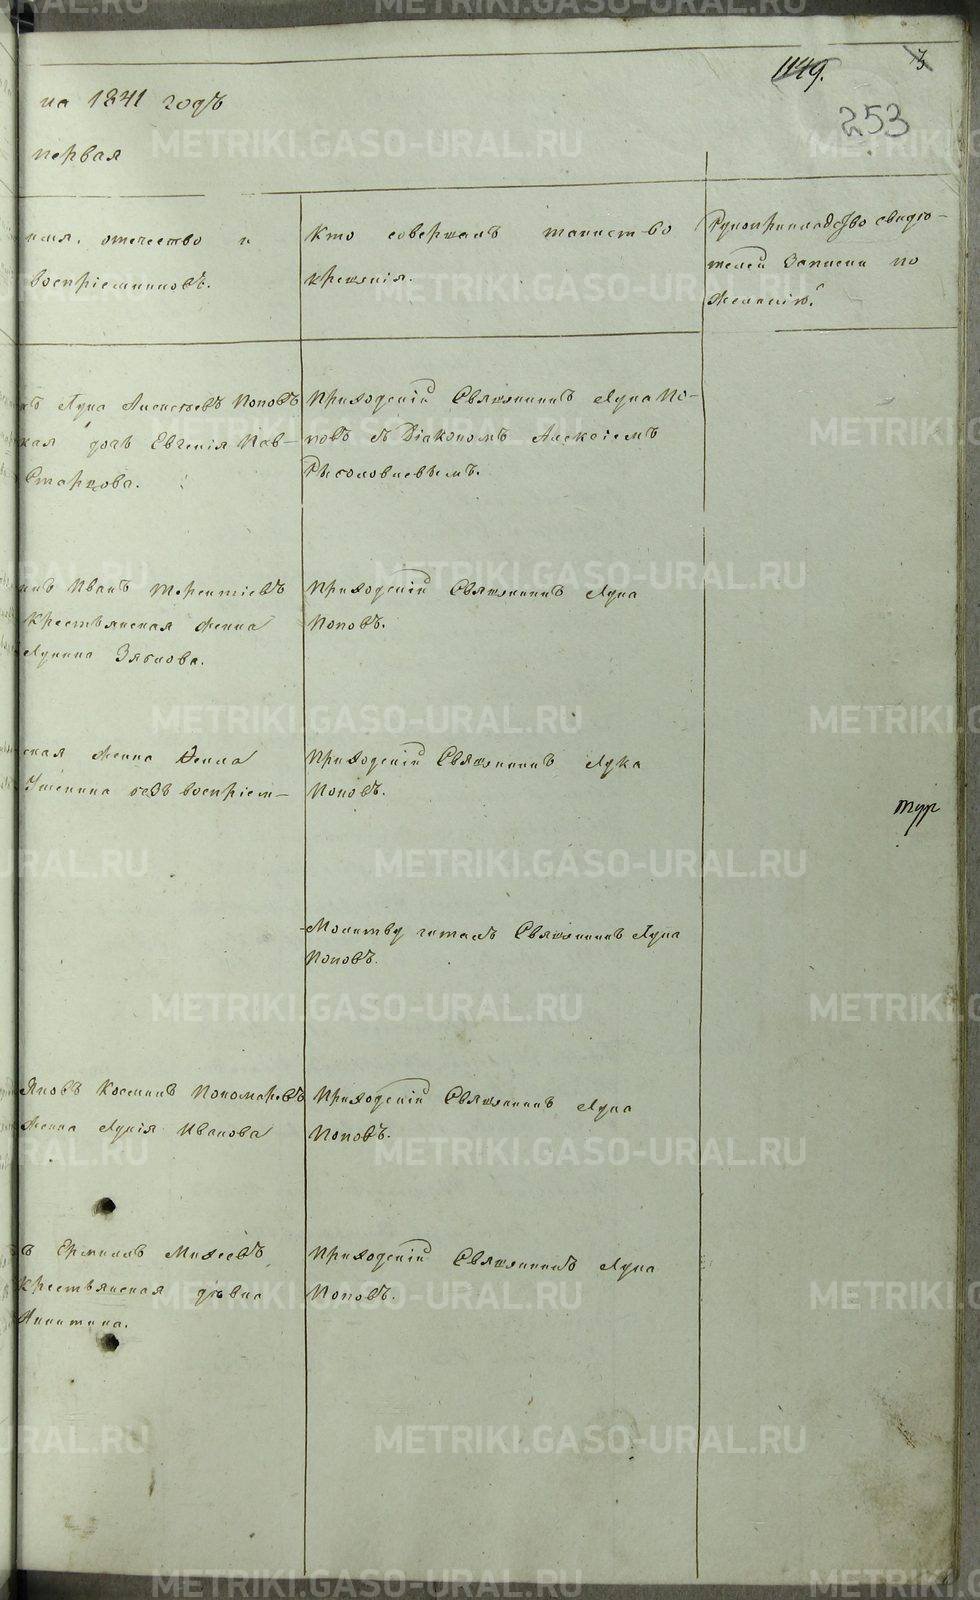 1149.
3
253
на 1841 годъ
первая
имя, отечество и
воспріемниковъ.
Кто совершалъ таинство
крещенія.
Рукоприкладство свидѣ-
телей записки по
желанію.
Лука Алексѣевъ Поповъ
дочь Евгенія Пав-
Старцова.
Приходскій Священникъ Лука По-
повъ съ Діакономъ Алексѣемъ
Иванъ Терентіевъ
Крестьянская жена
Зяблова.
Приходскій Священникъ Лука
Поповъ.
ская жена
безъ воспріем-
Приходскій Священникъ Лука
Поповъ.
Молитву читалъ Священникъ Лука
Поповъ.
Яковъ Косминъ Пономаревъ
жена Лукія Иванова
Приходскій Священникъ Лука
Поповъ.
ъ Ермилъ Михеевъ
крестьянская дѣвка
Никитина.
Приходскій Священникъ Лука
Поповъ.
METRIKI.GASO-URAL.RU